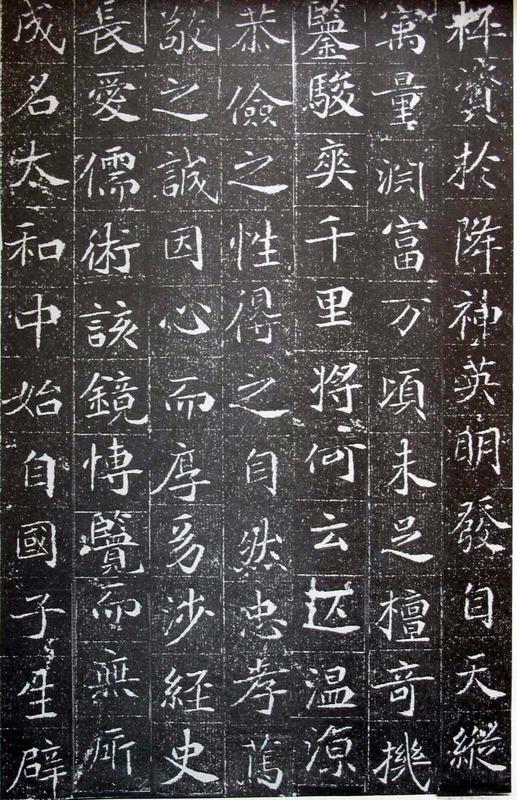 杯資於降神英明發自天縱
寓量渊富万頃未足擅奇機
鑒駿爽千里將何云匹温涼
恭儉之性得之自然忠孝篤
敬之誠因心而厚幼涉經史
長愛儒術該鏡博覽而無所
成名太和中始自國子生辟